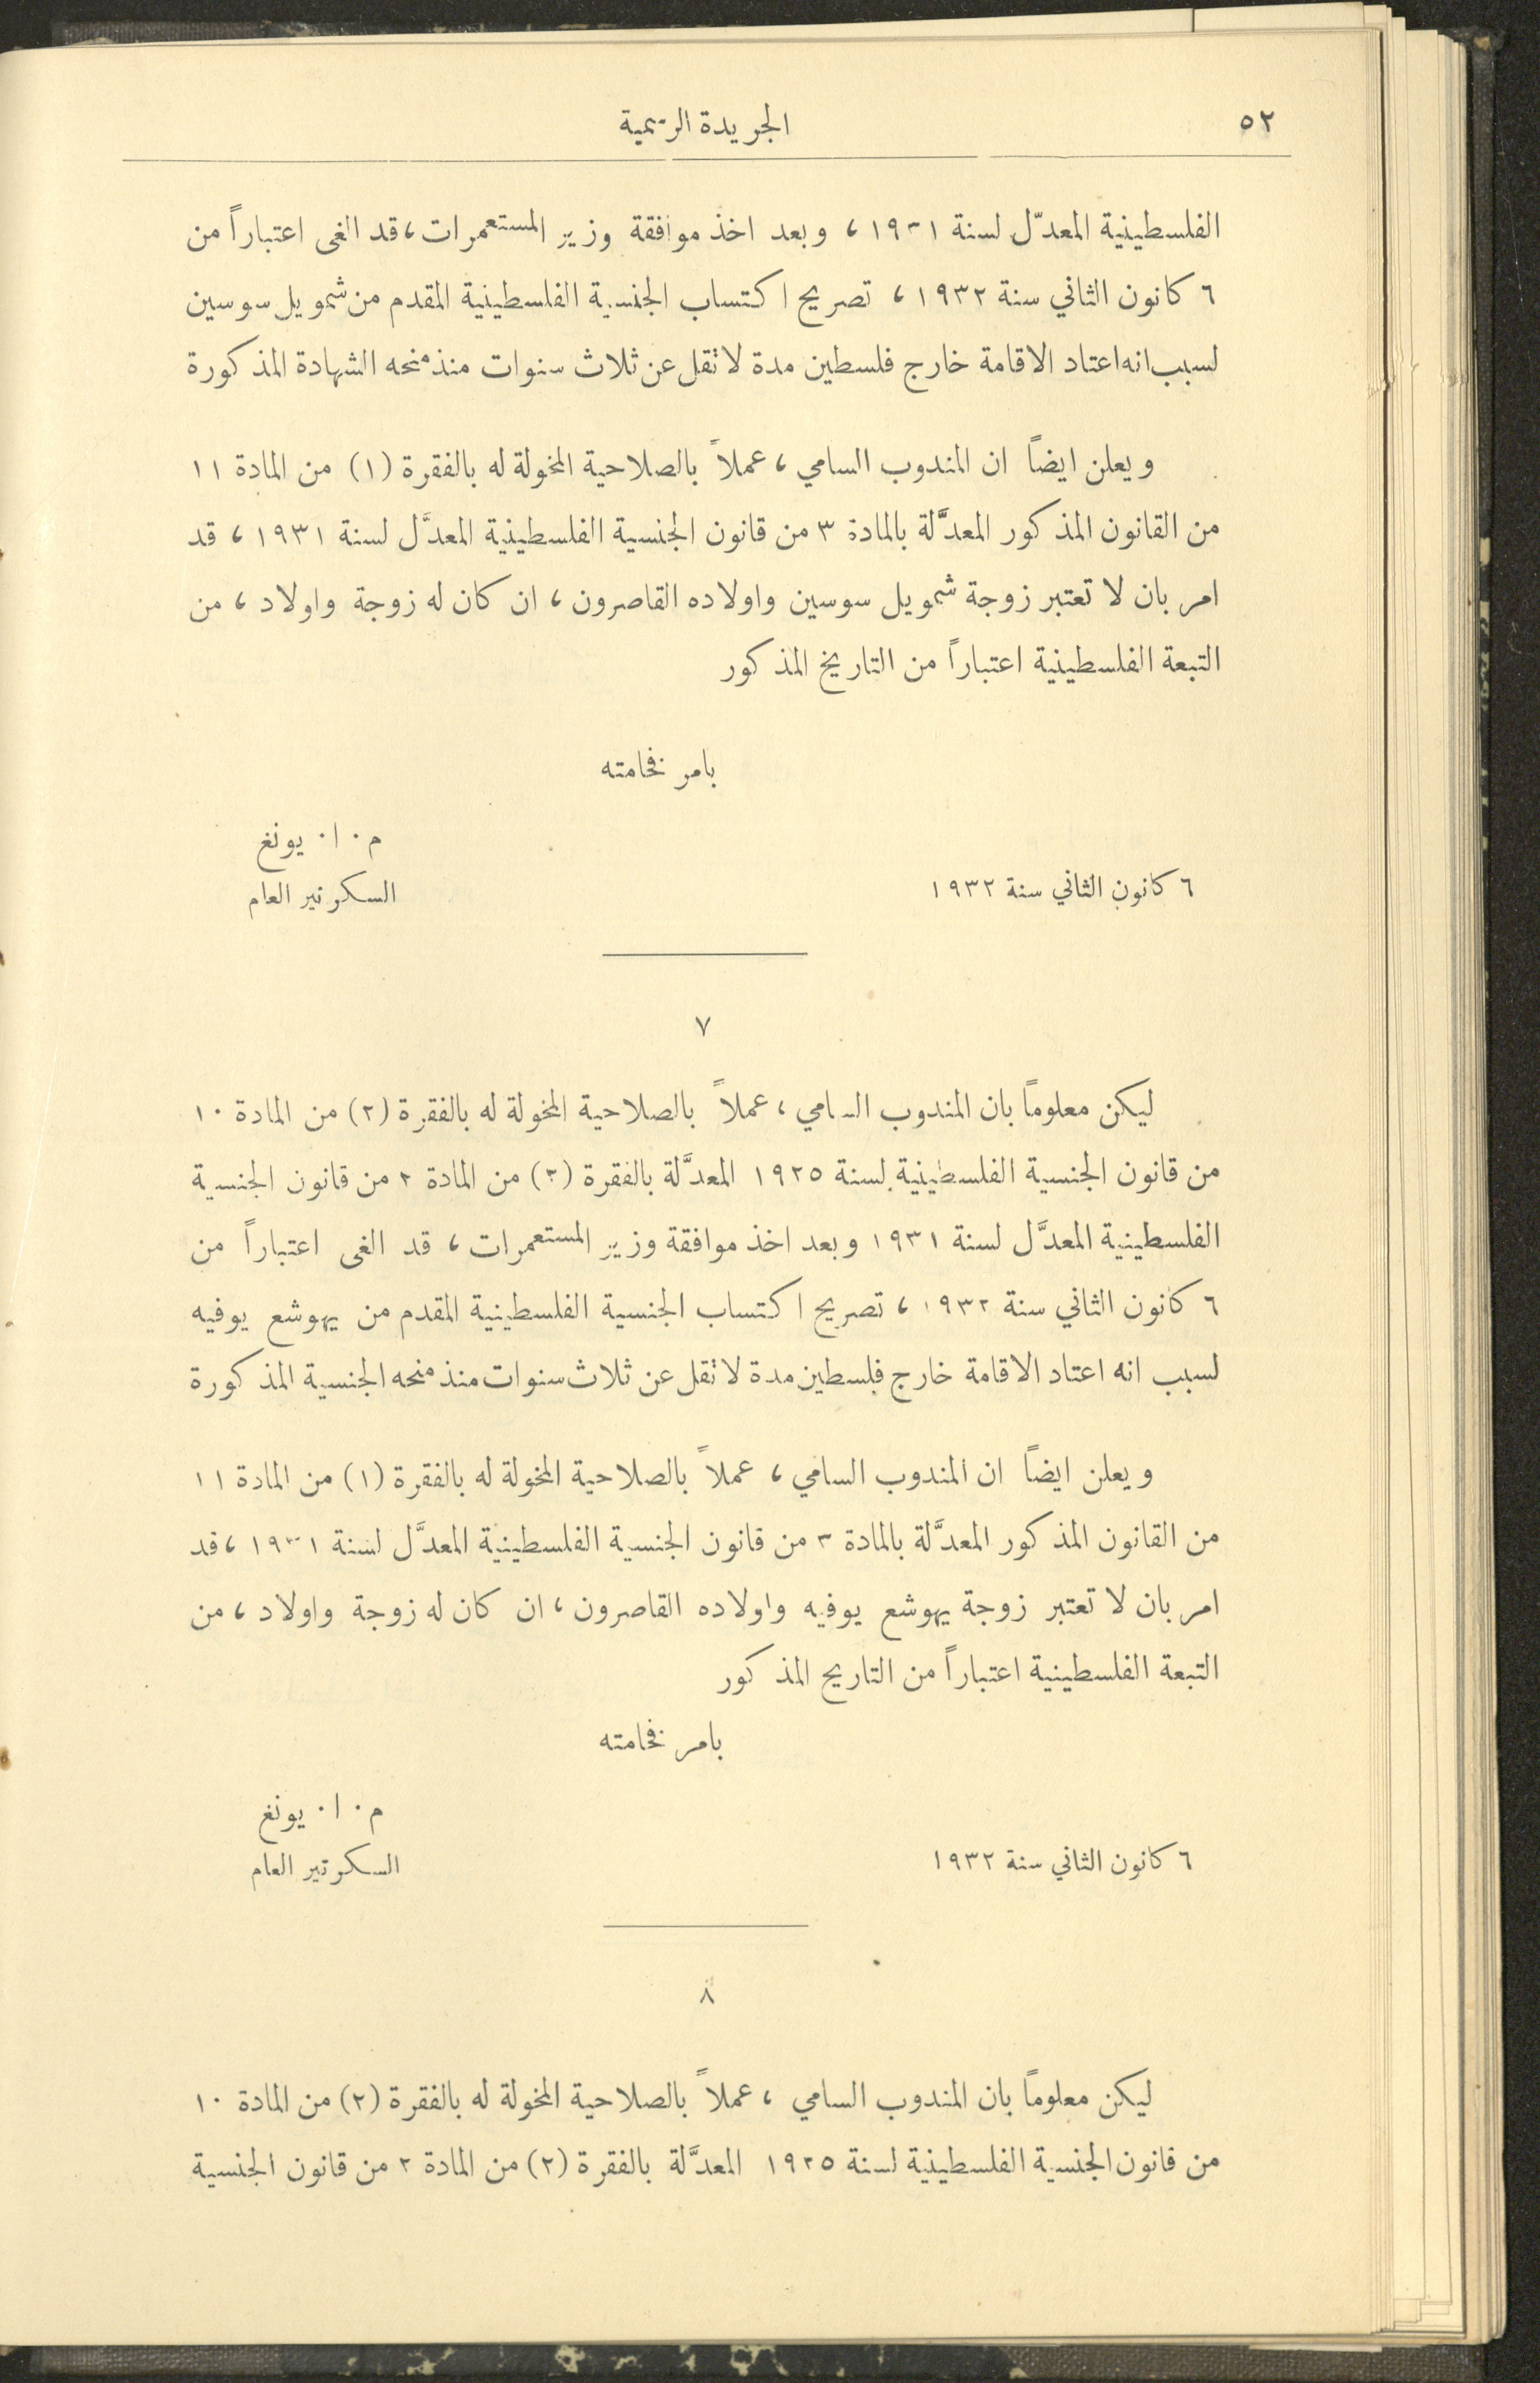 ٥٢
الجريدة الرسمية
الفلسطينية المعدّل لسنة ١٩٣١ ، وبعد اخذ موافقة وزير المستعمرات، قد الغى اعتباراً من
٦ كانون الثاني سنة ١٩٣٢ ، تصريح اكتساب الجنسية الفلسطينية المقدم من شمويل سوسين
لسبب انه اعتاد الاقامة خارج فلسطين مدة لا تقل عن ثلاث سنوات منذ منحه الشهادة المذكورة
ويعلن ايضاً ان المندوب السامي ، عملاً بالصلاحية المخولة له بالفقرة (١) من المادة ١١
من القانون المذكور المعدَّلة بالمادة ٣ من قانون الجنسية الفلسطينية المعدَّل لسنة ١٩٣١ ، قد
امر بان لا تعتبر زوجة شمويل سوسين واولاده القاصرون ، ان كان له زوجة واولاد ، من
التبعة الفلسطينية اعتباراً من التاريخ المذكور
بامر فخامته
م٠ ا٠ يونغ
٦ كانون الثاني سنة ١٩٣٢ السكرتير العام
٧
ليكن معلوماً بان المندوب السامي ، عملاً بالصلاحية المخولة له بالفقرة (٢) من المادة ١٠
من قانون الجنسية الفلسطينية لسنة ١٩٢٥ المعدَّلة بالفقرة (٢) من المادة ٢ من قانون الجنسية
الفلسطينية المعدَّل لسنة ١٩٣١ وبعد اخذ موافقة وزير المستعمرات ، قد الغى اعتباراً من
٦ كانون الثاني سنة ١٩٣٢ ، تصريح اكتساب الجنسية الفلسطينية المقدم من يهوشع يوفيه
لسبب انه اعتاد الاقامة خارج فلسطين مدة لا تقل عن ثلاث سنوات منذ منحه الجنسية المذكورة
ويعلن ايضاً ان المندوب السامي ، عملاً بالصلاحية المخولة له بالفقرة (١) من المادة ١١
من القانون المذكور المعدَّلة بالمادة ٣ من قانون الجنسية الفلسطينية المعدَّل لسنة ١٩٣١ ، قد
امر بان لا تعتبر زوجة يهوشع يوفيه واولاده القاصرون ، ان كان له زوجة واولاد ، من
التبعة الفلسطينية اعتباراً من التاريخ المذكور
بامر فخامته
م٠ ا٠ يونغ
٦ كانون الثاني سنة ١٩٣٢ السكرتير العام
٨
ليكن معلوماً بان المندوب السامي ، عملاً بالصلاحية المخولة له بالفقرة (٢) من المادة ١٠
من قانون الجنسية الفلسطينية لسنة ١٩٢٥ المعدَّلة بالفقرة (٢) من المادة ٢ من قانون الجنسية